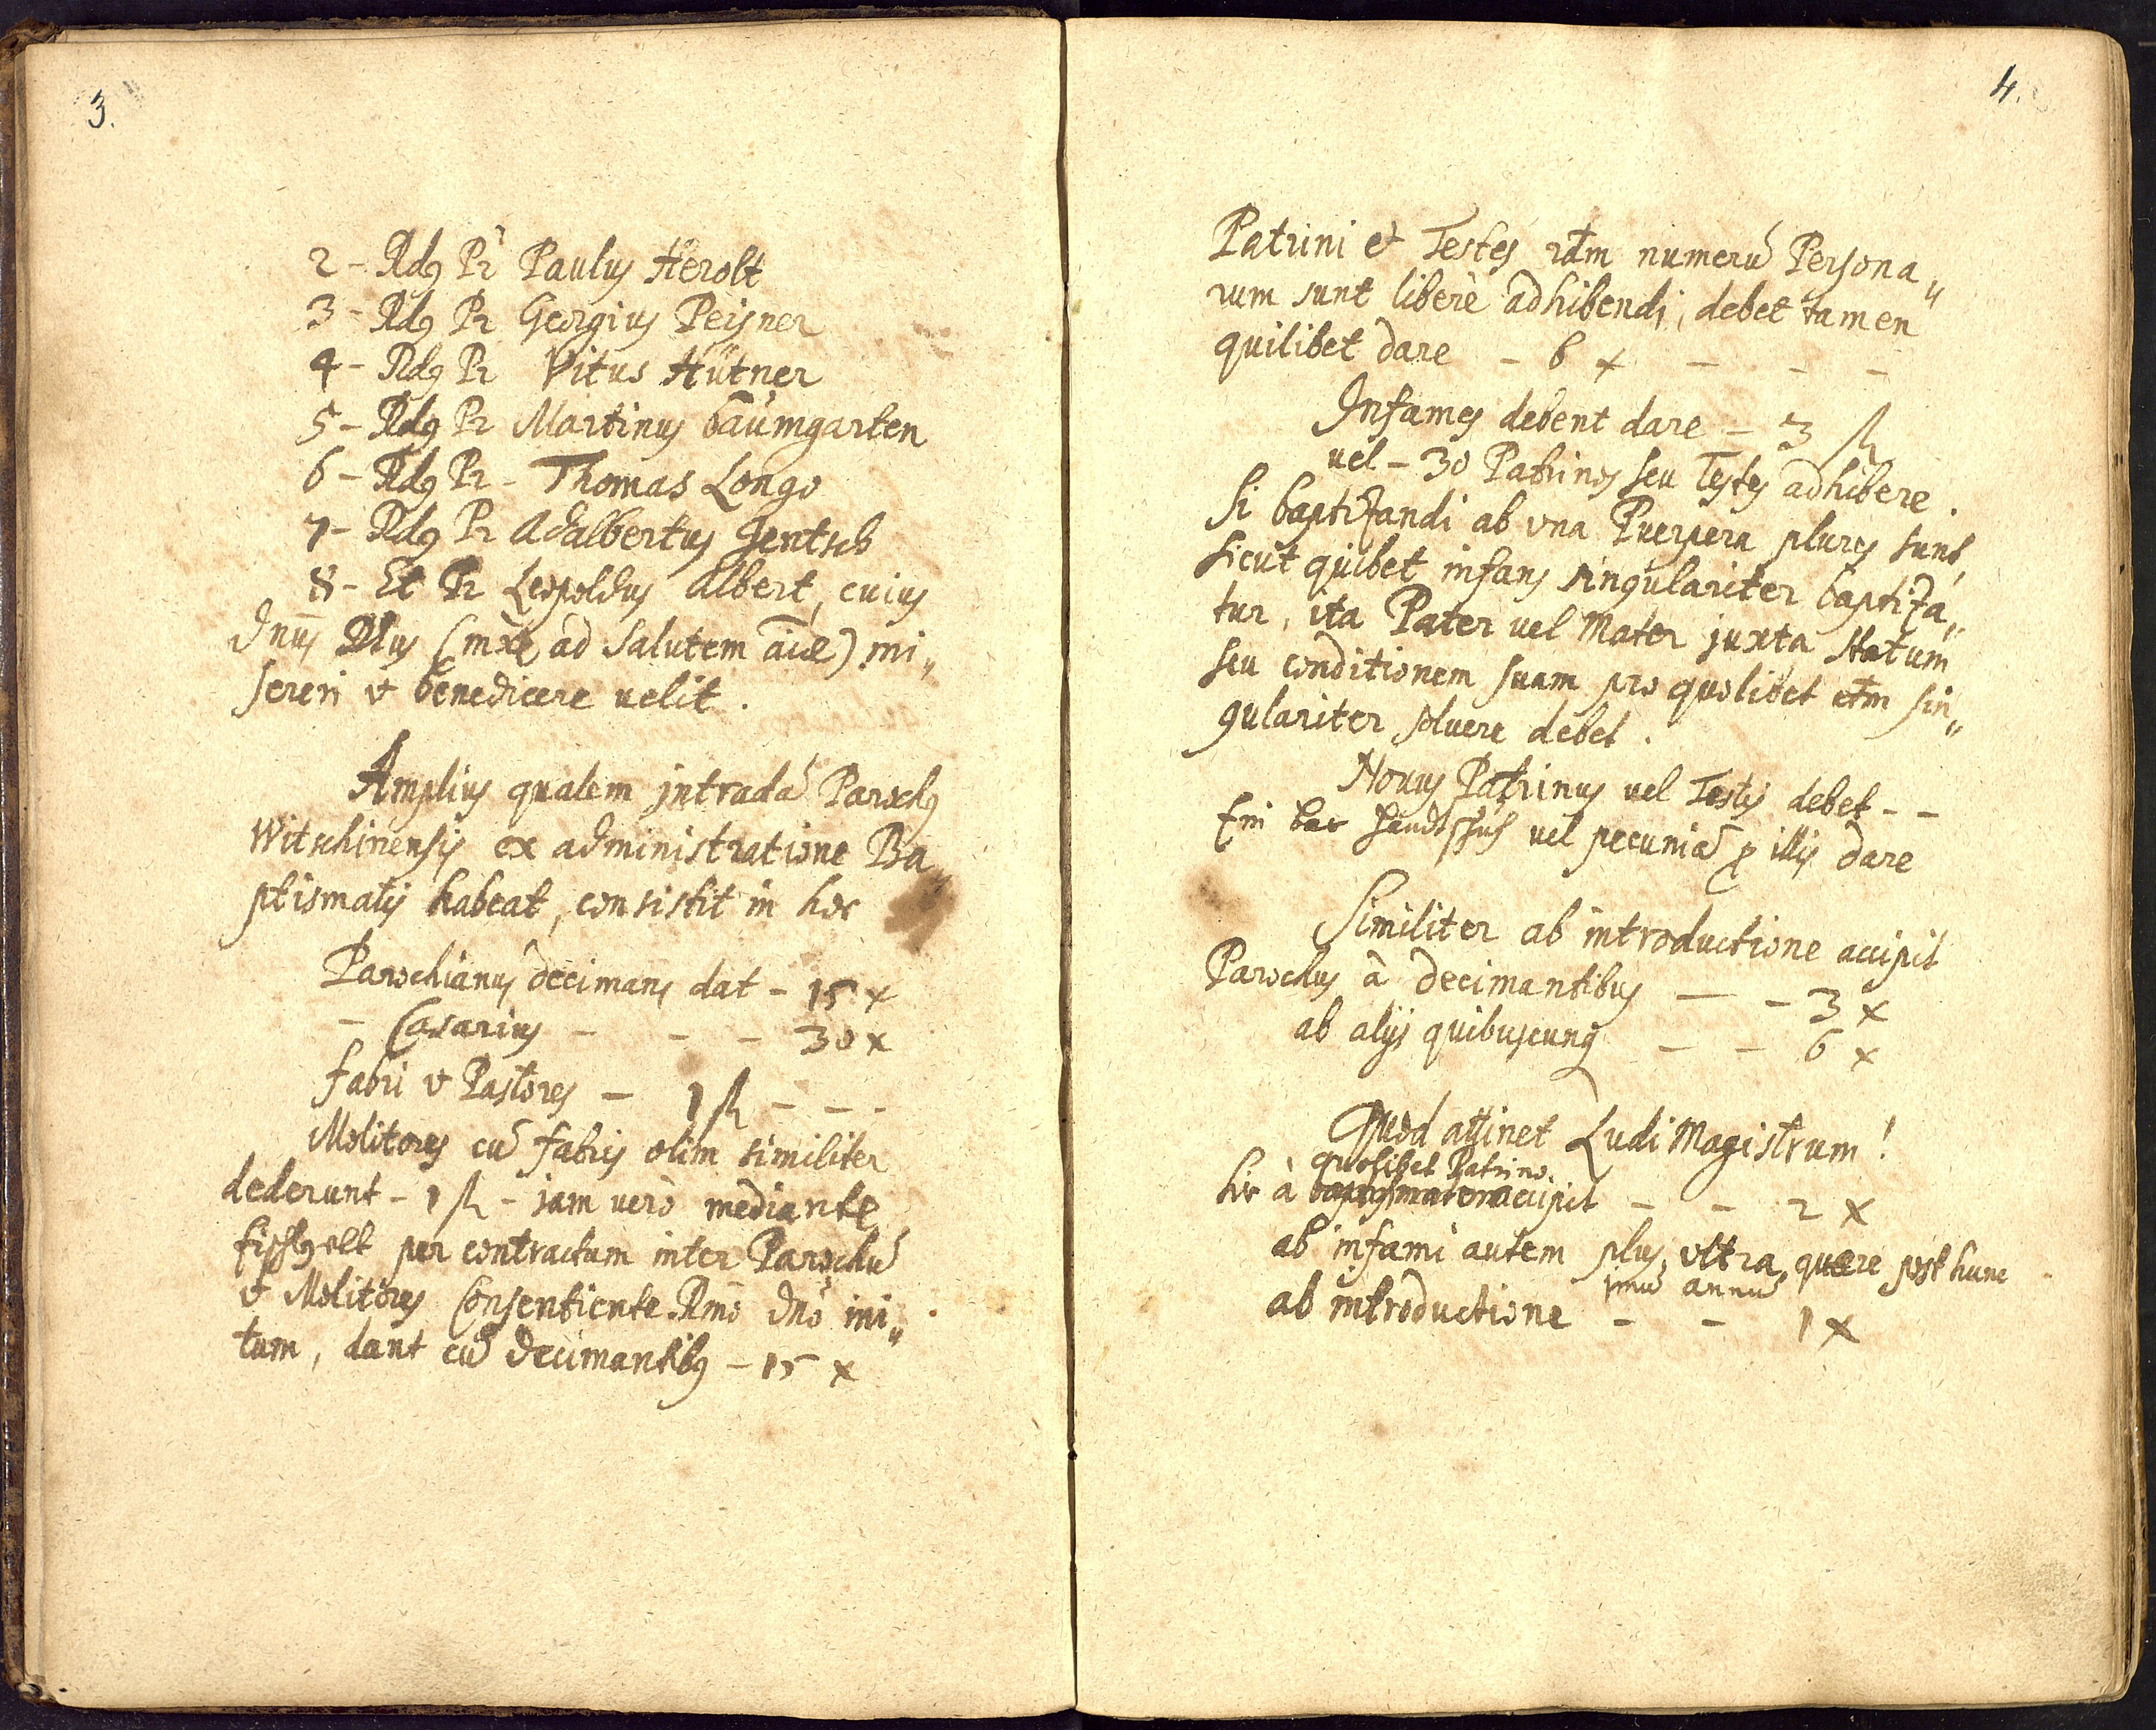 3.
2 - Rdq Pr Paulus Herolt
3 - Rdq Pr Georgius Peisner
4 - Rdq Pr Vitus Hütner
5 - Rdq Pr Martinus baumgarten
6 - Rdq Pr - Thomas Longo
7 - Rdq Pr Adalbertus Jentsch
8 - Et Pr Leopoldus Albert, cuius
Dnus (mxe ad Salutem aiæ) mi„
sereri & benedicere uelit.
Amplius qualem jntradā Parochq
Witschinensis ex administratione Ba„
ptismatis habeat, consistit in hoc
Parochianus decimans dat - 15 x
- Casarius - - - 30 x
fabri & Pastores - 1 fl - - -
Molitores cū fabris olim similiter
dederunt - 1 fl - jam verò mediante
fischgelt per contractum inter Parochū
& Molitores Consentiente Rmo Dno ini„
tum, dant cū decimantibq - 15 x
4.
Patrini et Testes numerū Persona„
rum sunt liberè adhibendi, debet tamen
quilibet dare - 6 x - - -
Infames debent dare - 3 fl
uel - 30 Patrinos seu Testes adhibere.
Si baptizandi ab vna Puerpera plures sunt,
sicut quibet infans singulariter baptiza„
tur, ita Pater uel Mater juxta Statum
seu conditionem suam pro quolibet etm sin„
gulariter soluere debet.
Nouus Patrinus uel Testis debet - -
Ein bar handtschuh uel pecuniā p illis dare
Similiter ab introductione accipit
Parochus à decimantibus - - 3 x
ab alijs quibuscunq - - 6 x
Quod attinet Ludi Magistrum!
quolibet Patrino
hic à accipit - - 2 x
ab infami autem plus, vltra quære post hunc
annū
ab introductione - - 1 x